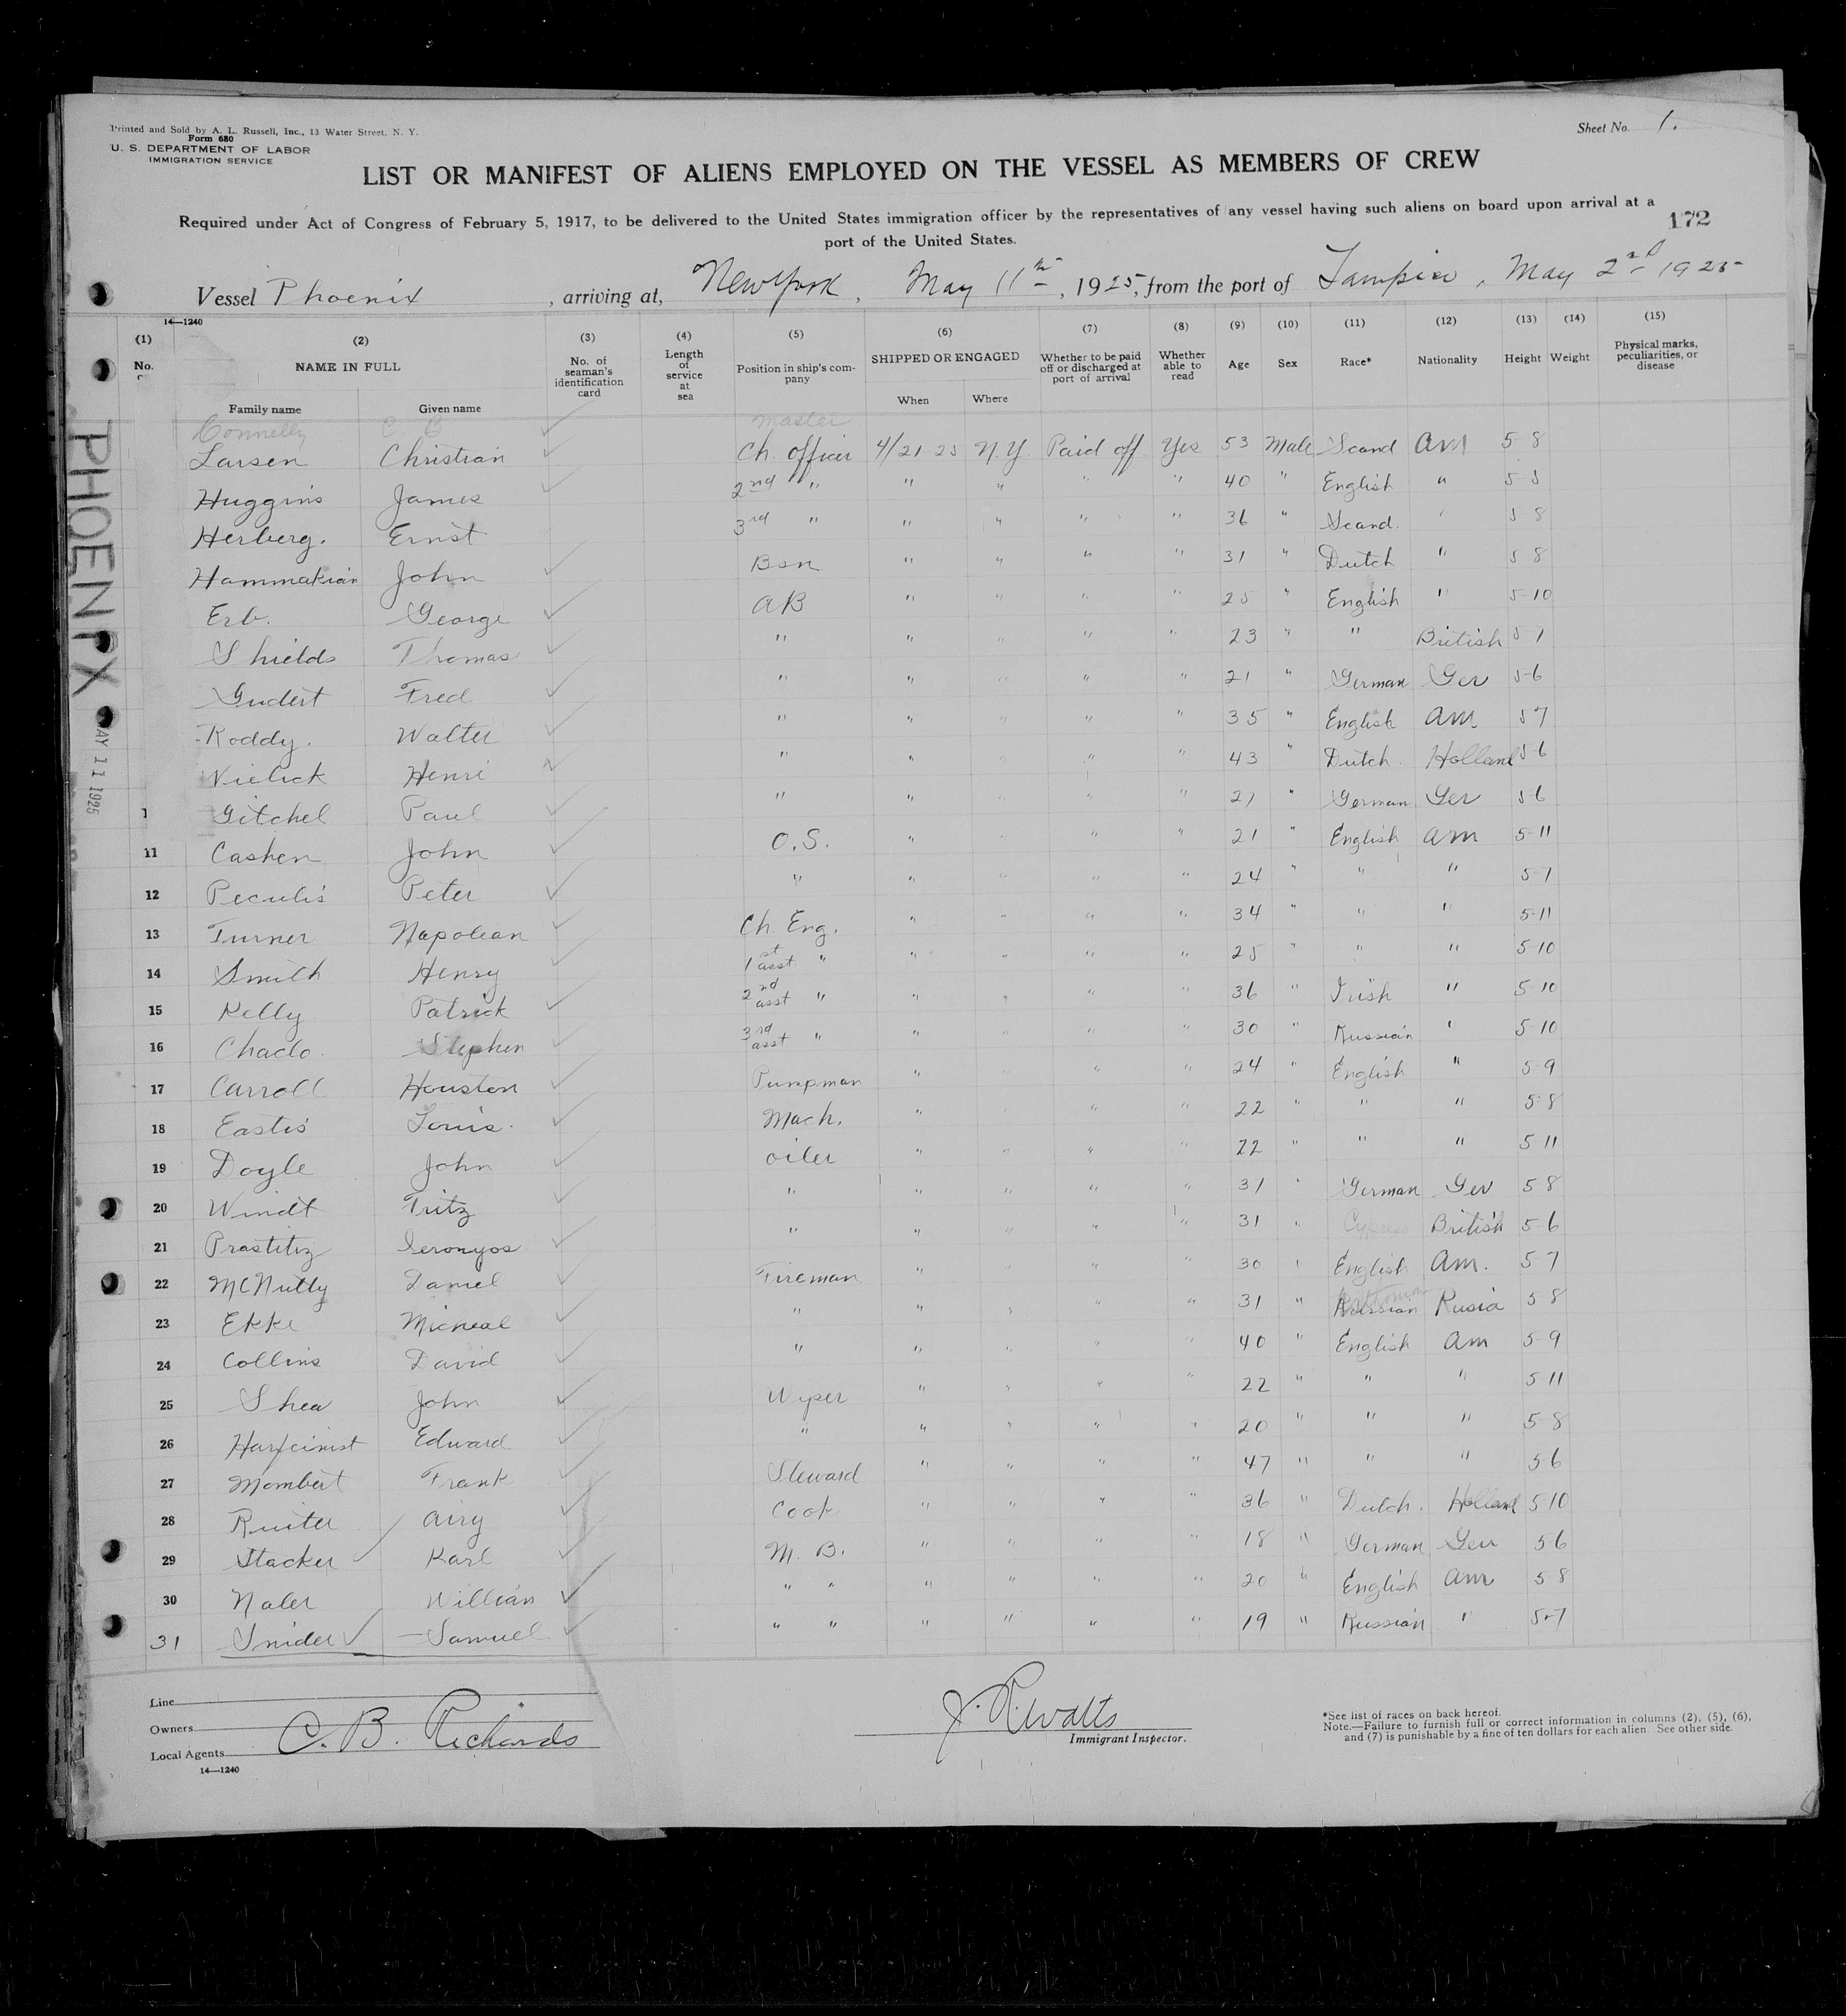 Printed and Sold by A. L. Russell, Inc., 13 Water Street, N. Y.
Form 680
U. S. DEPARTMENT OF LABOR
IMMIGRATION SERVICE
Sheet No. 1.
LIST OR MANIFEST OF ALIENS EMPLOYED ON THE VESSEL AS MEMBERS OF CREW
Required under Act of Congress of February 5, 1917, to be delivered to the United States immigration officer by the representatives of any vessel having such aliens on board upon arrival at a
port of the United States.
172
Vessel Phoenix, arriving at, New York, May 11th, 1925, from the port of Tampico, May 2nd 1925
14—1240
(1) (2) (3) (4) (5) (6) (7) (8) (9) (10) (11) (12) (13) (14) (15)
No. NAME IN FULL No. of seaman's identification card Length of service at sea Position in ship's company SHIPPED OR ENGAGED Whether to be paid off or discharged at port of arrival Whether able to read Age Sex Race* Nationality Height Weight Physical marks, peculiarities, or disease
Family name Given name When Where
Connelly C B Master
Larsen Christian Ch. officer 4/21 25 N.Y. Paid off Yes 53 Male Scand Am 5 8
Huggins James 2nd " " " " " 40 " English " 5 5
Herberg. Ernst 3rd " " " " " 36 " Scand. " 5 8
Hammakian John Bsn " " " " 31 " Dutch " 5 8
Erb. George AB " " " " 25 " English " 5-10
Shields Thomas " " " " " 23 " " British 5 7
Gudert Fred " " " " " 21 " German Ger 5-6
Roddy. Walter " " " " " 35 " English Am 5 7
Vielick Henri " " " " " 43 " Dutch. Holland 5-6
1 Gitchel Paul " " " " " 21 " German Ger 5-6
11 Cashen John O.S. " " " " 21 " English Am 5-11
12 Peculis Peter " " " " " 24 " " " 5-7
13 Turner Napolean Ch. Eng. " " " " 34 " " " 5-11
14 Smith Henry 1st asst " " " " " 25 " " " 5-10
15 Kelly Patrick 2nd asst " " " " " 36 " Irish " 5 10
16 Chaclo. Stephen 3rd asst " " " " " 30 " Russian " 5-10
17 Carroll Houston Pumpman " " " " 24 " English " 5-9
18 Eastis Louis. Mach. " " " " 22 " " " 5-8
19 Doyle John oiler " " " " 22 " " " 5 11
20 Windt Fritz " " " " " 31 " German Ger 5 8
21 Prastitiz Ieronyos " " " " " 31 " Cypress British 5-6
22 McNulty Daniel Fireman " " " " 30 " English Am. 5 7
23 Ekke Micheal " " " " " 31 " Russian Rusia 5 8
24 Collins David " " " " " 40 " English Am 5-9
25 Shea John Wiper " " " " 22 " " " 5 11
26 Edward " " " " " 20 " " " 5-8
27 Mombert Frank Steward " " " " 47 " " " 5 6
28 Ruiter Airy Cook. " " " " 36 " Dutch. Holland 5 10
29 Stacker Karl M. B. " " " " 18 " German Ger 5 6
30 Naler William " " " " " " 20 " English Am 5 8
31 Snider Samuel " " " " " " 19 " Russian " 5-7
PHOENIX
MAY 11 1925
Line
Owners
Local Agents C. B. Richards
14—1240
J. R. Watts
Immigrant Inspector.
*See list of races on back hereof.
Note.—Failure to furnish full or correct information in columns (2), (5), (6),
and (7) is punishable by a fine of ten dollars for each alien. See other side.